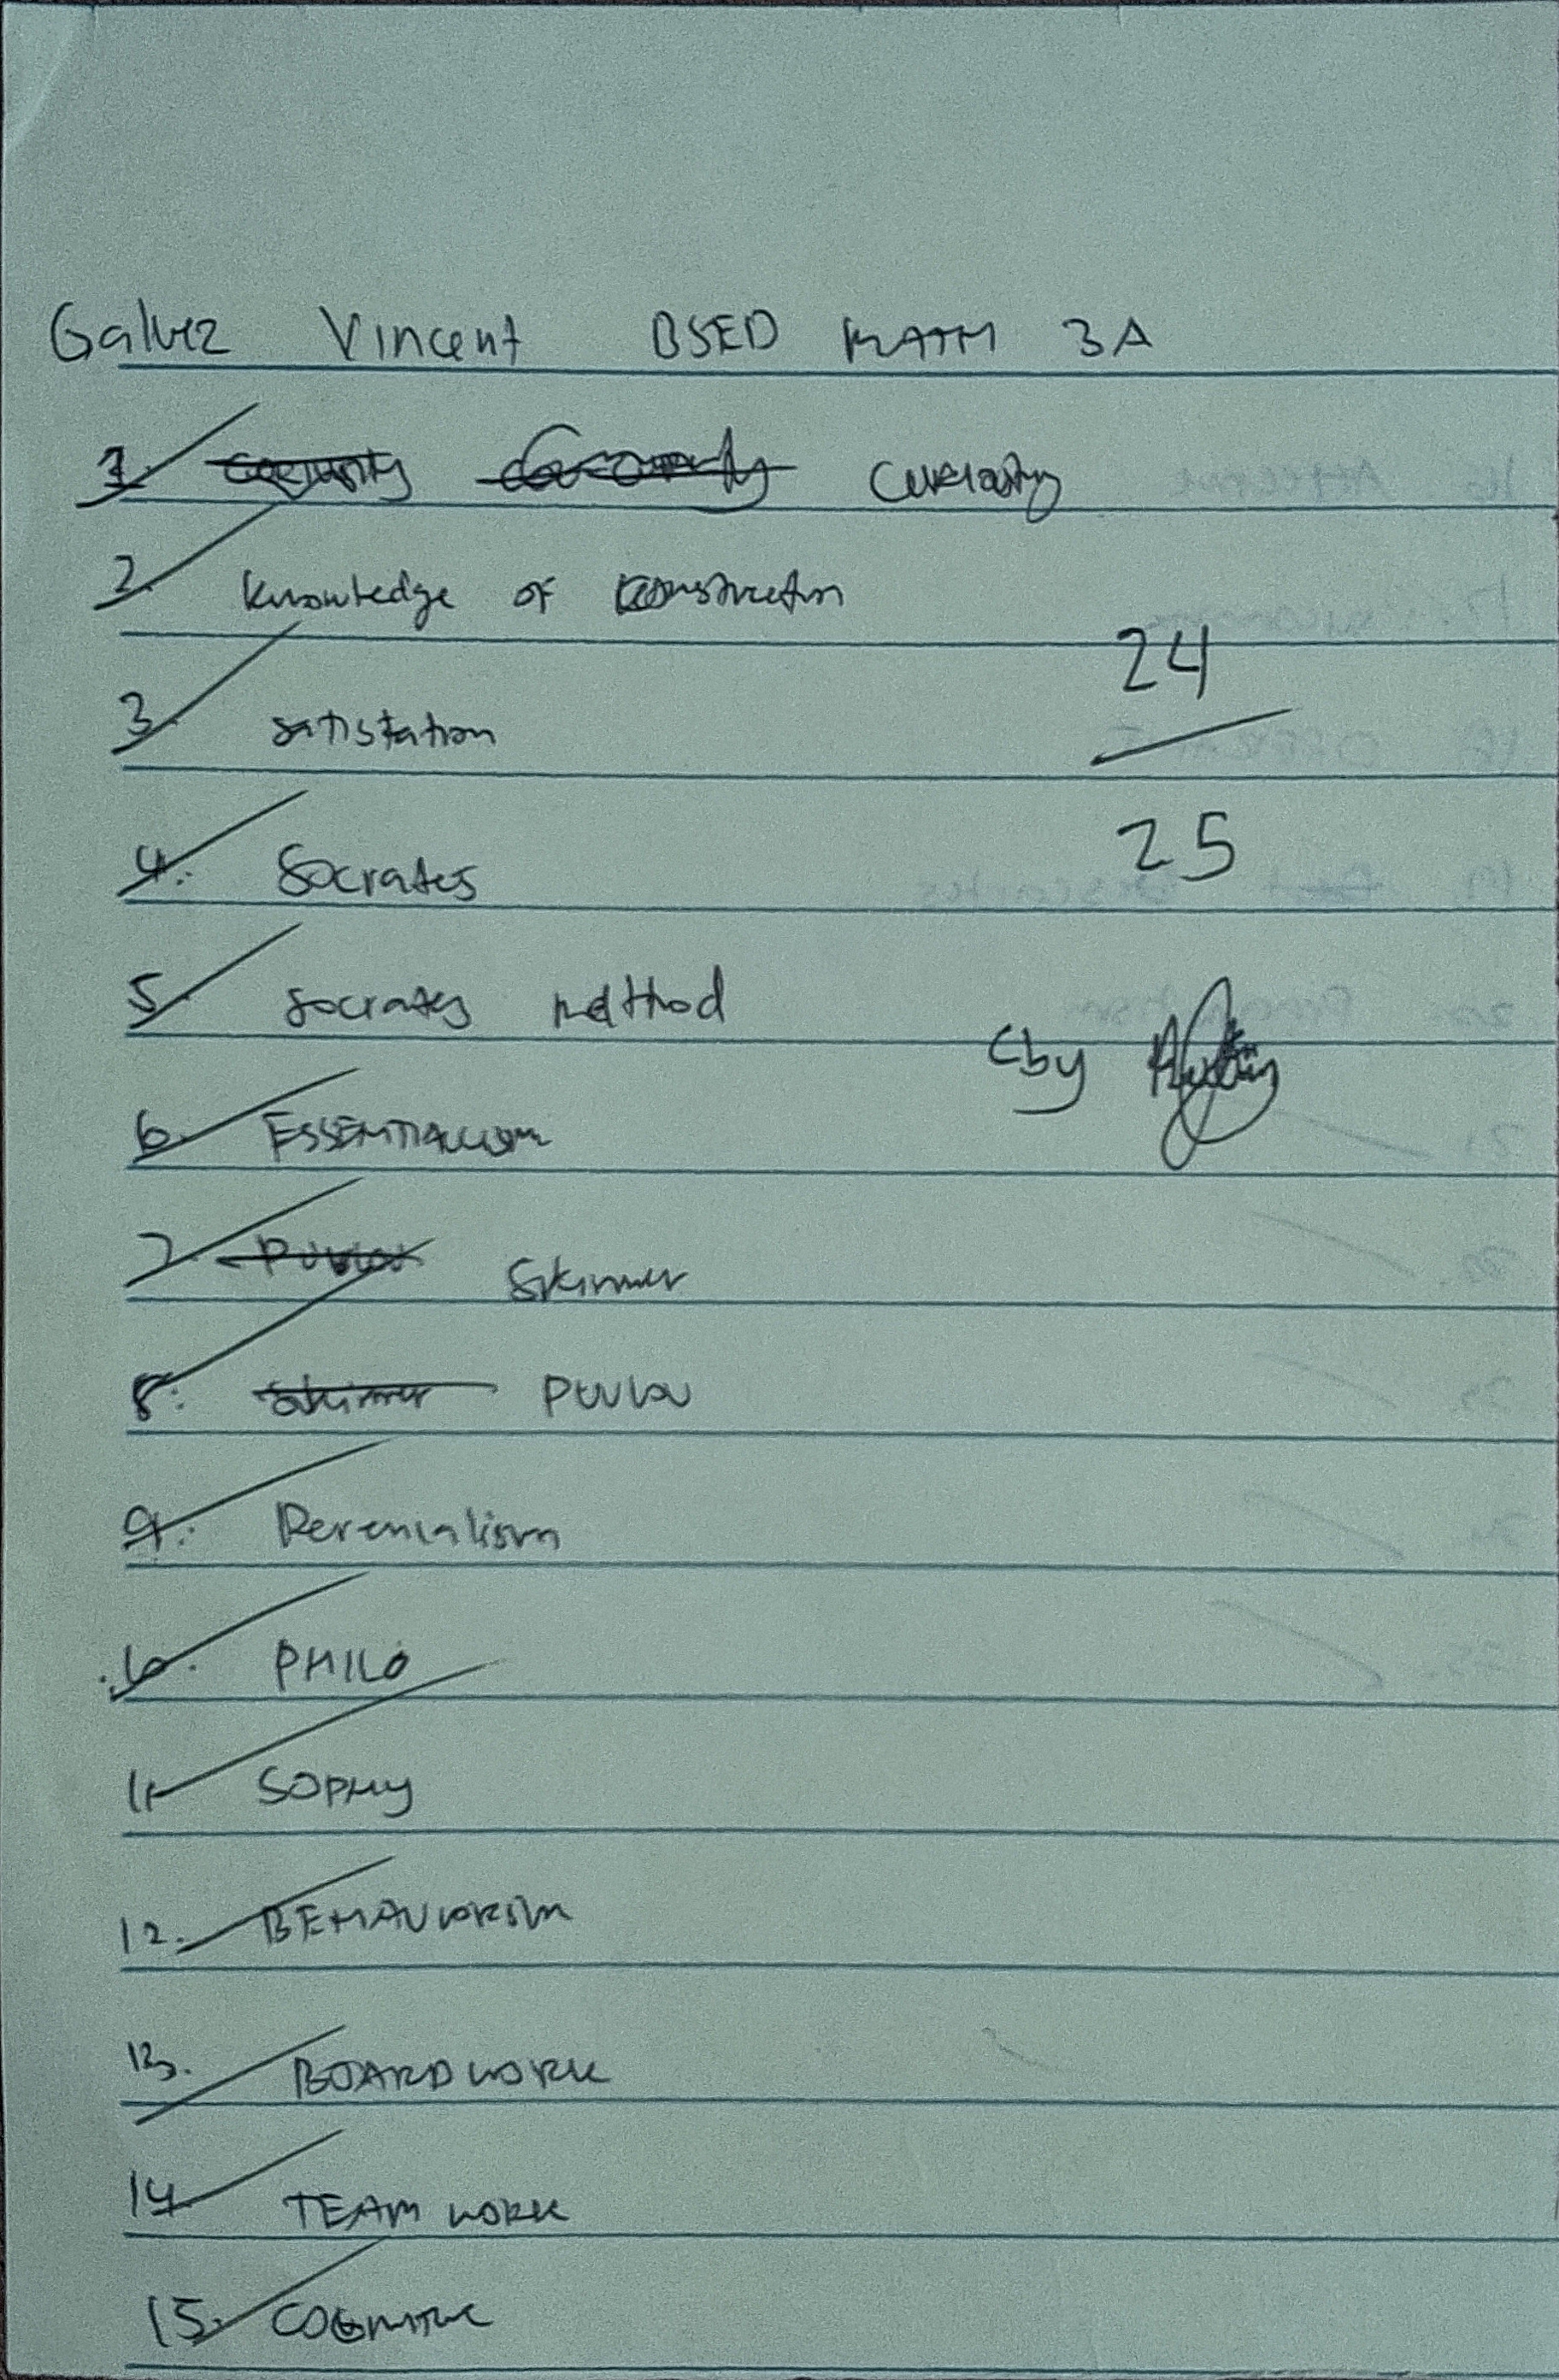 Galvez Vincent BSED MATH 3A
1. Curiosity
2. Knowledge of construction
24
3. satistation
25
4. Socrates
5. socrates method
Cby
6. ESSENTIALism
7. Pavlov Skinner
8. Skinner Pavlov
9. Perenialism
10. PHILO
11. SOPHY
12. BEHAVIORISM
13. BOARD WORK
14. TEAM WORK
15. COGNITIVE